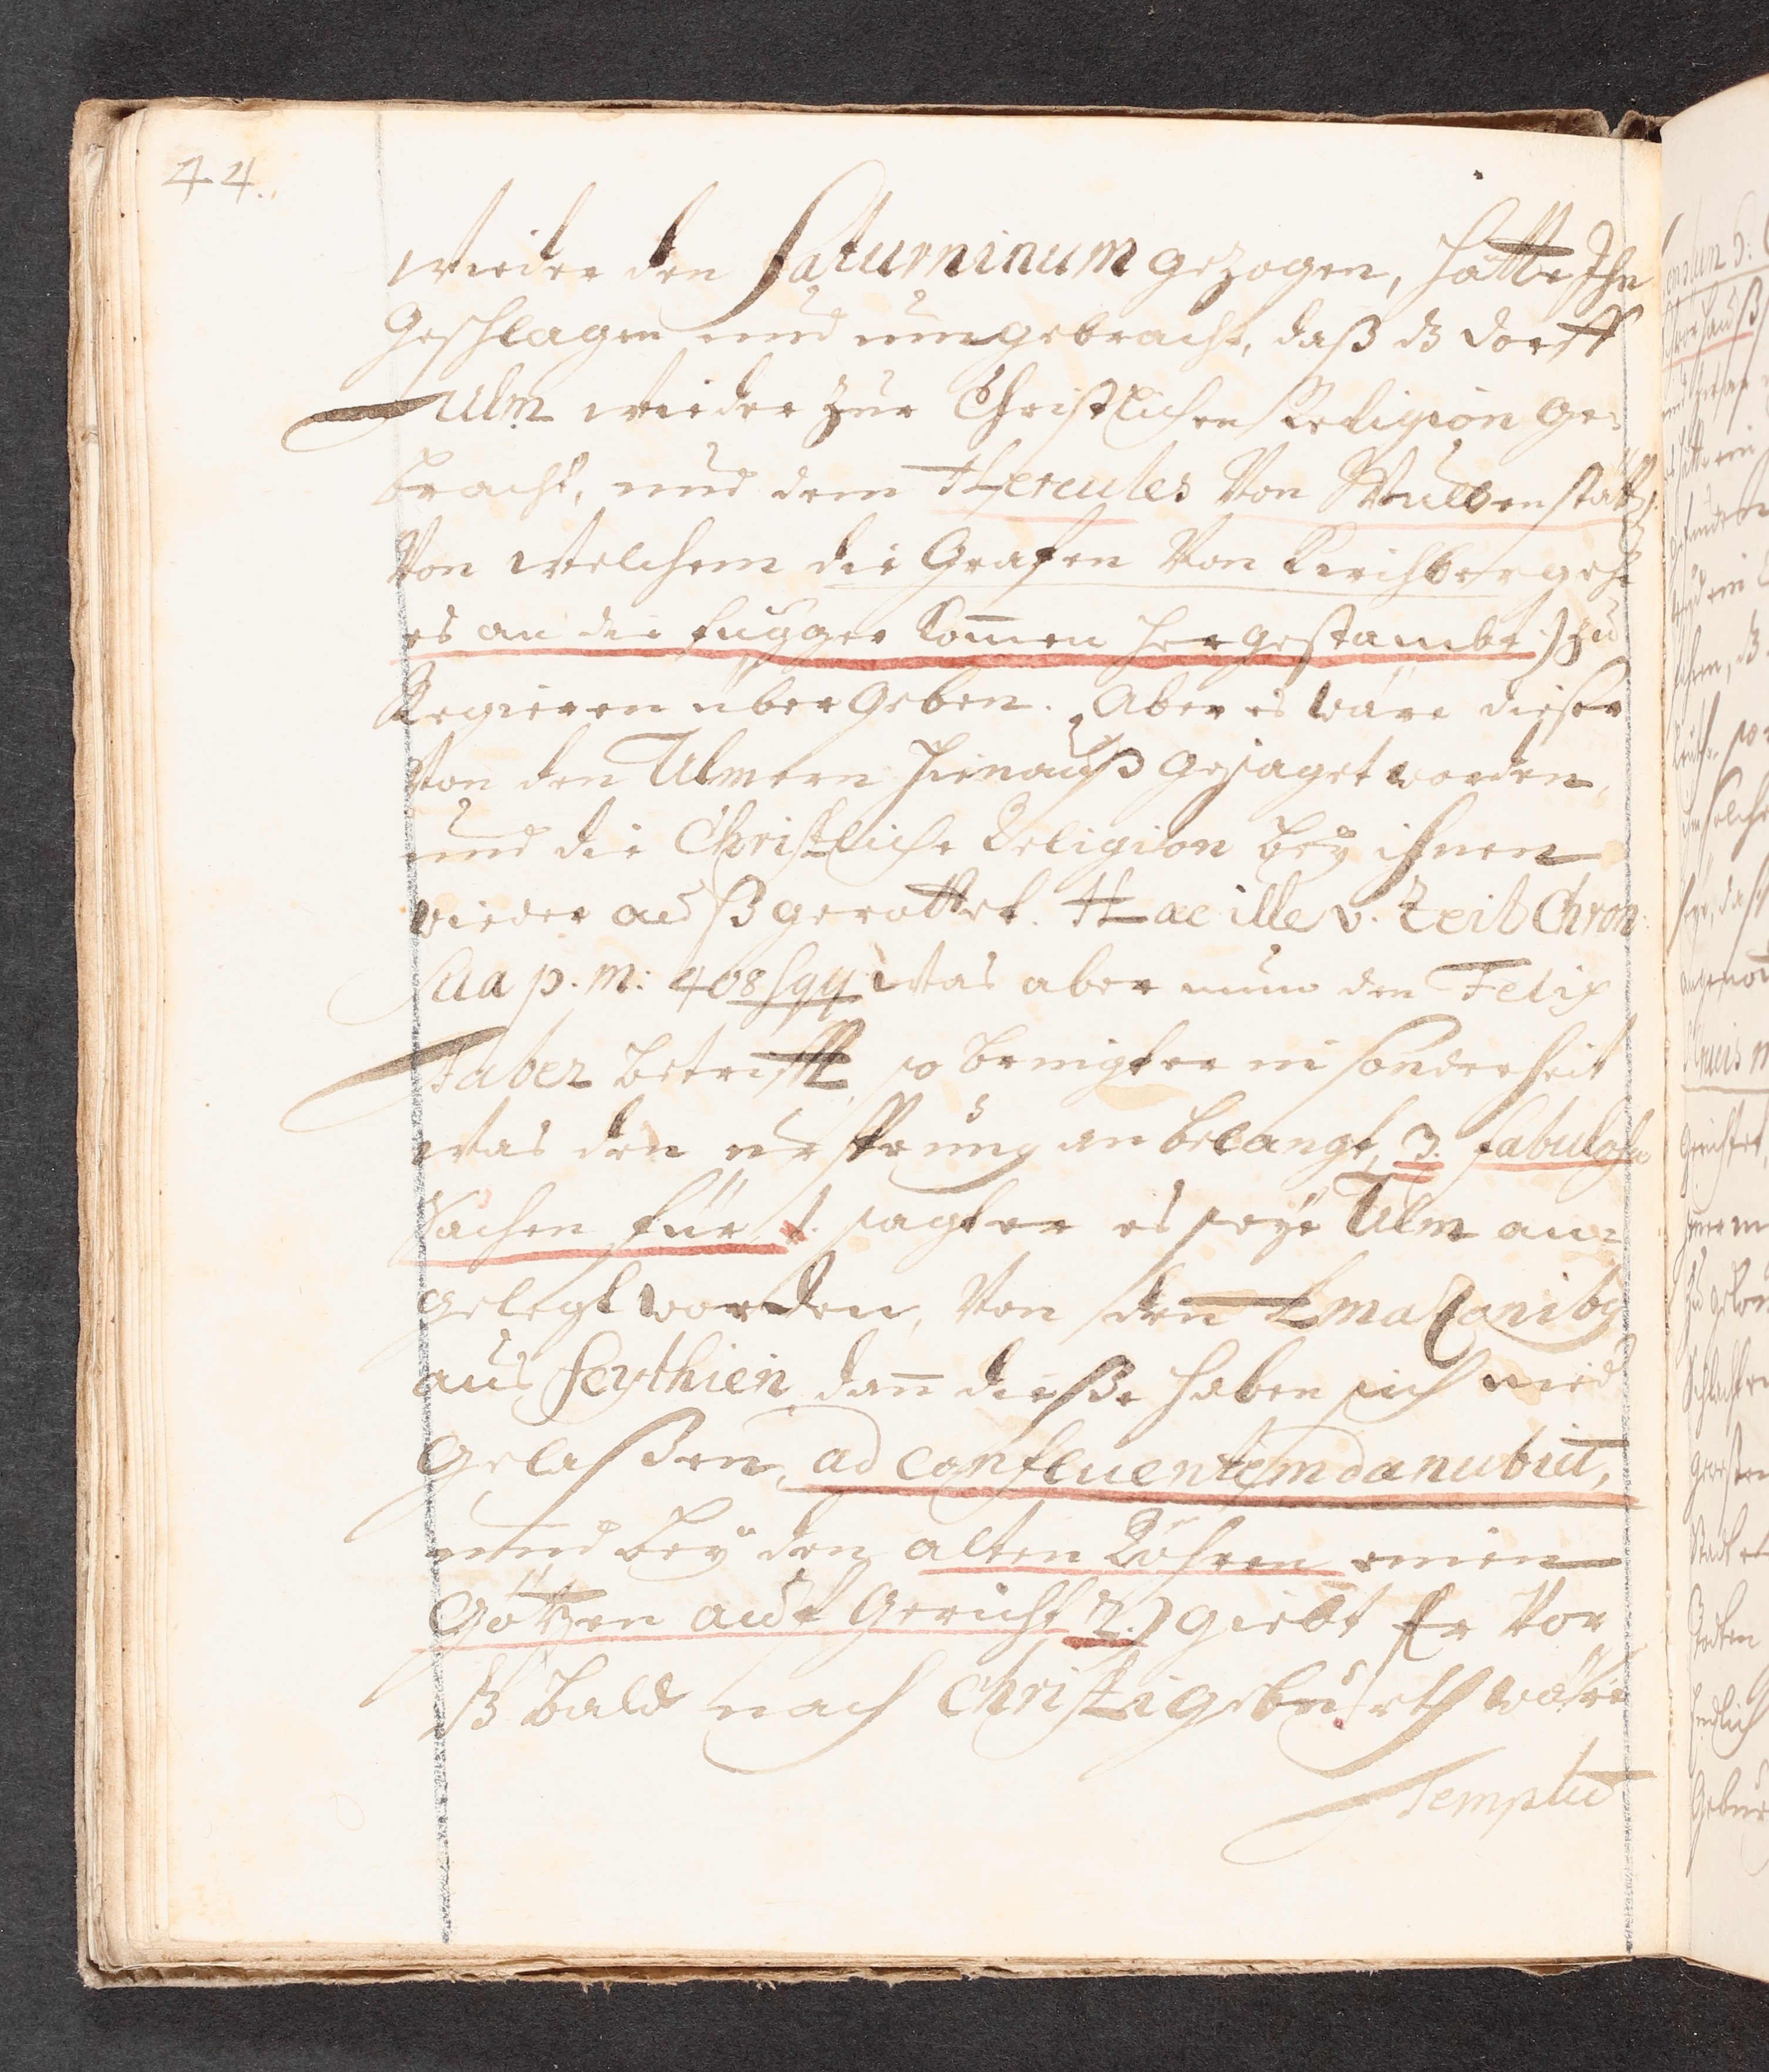 44.
wieder den Saturninum gezogen, hätte Ihn
Geschlagen und umgebracht, daß dz Dorff
Ulm wieder zur Christlichen Religion ge-
bracht, und dem Hercules von Wullenstätt,
Von welchem die Grafen Von Kirchberg ehe
es an die fugger kom̄en hergestambt) zu
Regieren übergeben. Aber es wäre dieser
Von den Ulmern hinauß gejaget worden,
und die Christliche Religion beÿ ihnen
wieder außgerottet. Haec ille v. Zeit Chron:
Sua p. m: 408 sqq was aber nun den Felix
Faber betrifft, so bringt er in sonderheit
was den ursprung anbelangt, 3. fabulose
Sachen für, 1. sagt er es seÿe Ulm an-
gelegt worden, Von den Amazonibg
aus Scythien dan̄ dieße haben sich nied
Gelaßen, ad confluentem danubiū,
und beÿ den alten Röhren einen
Götzen auf Gericht 2.) giebt Er Vor
dz bald nach Christi geburth wäre
Templū